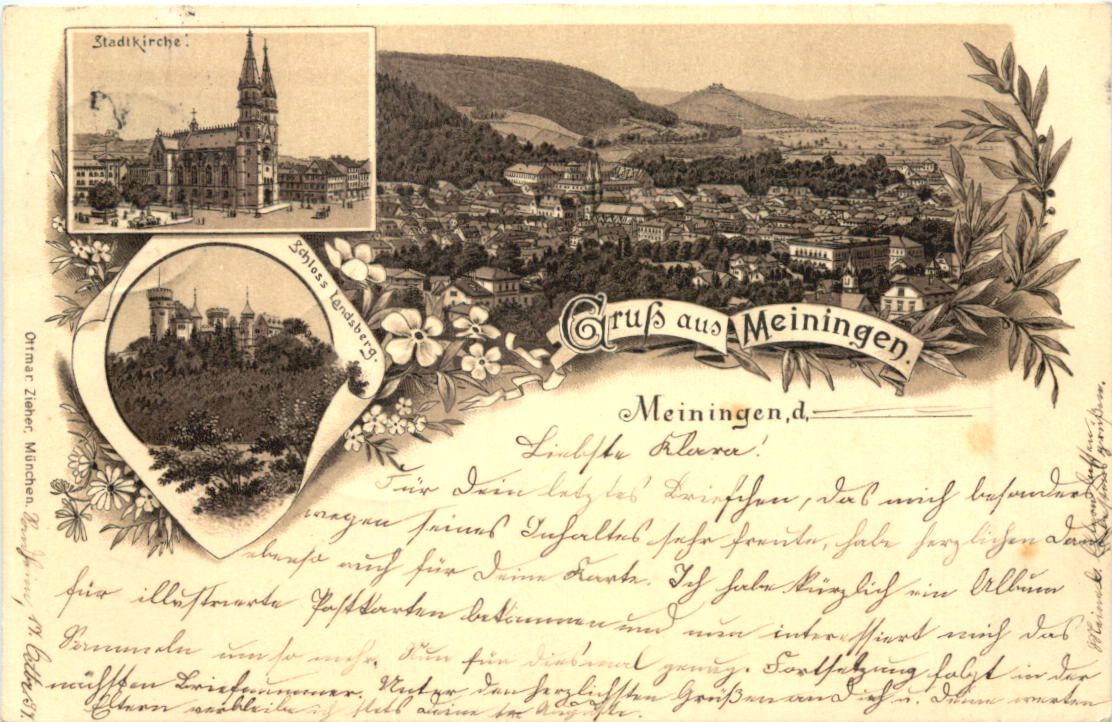 Stadtkirche.
Schloss Landsberg.
Gruß aus Meiningen.
Meiningen, d.
Liebste Klara!
Für Dein letztes Briefchen, das mich besonders
wegen seines Inhaltes sehr freute, habe herzlichen Dank
ebenso auch für Deine Karte. Ich habe kürzlich ein Album
für illustrierte Postkarten bekommen und nun interessiert mich das
Sammeln um so mehr. Nun für diesmal genug. Fortsetzung folgt in der
nächsten Briefnummer. Unter den herzlichsten Grüßen an Dich u. Deine werten
Eltern verbleibe ich stets Deine Auguste.
Ottmar Zieher, München.
17.